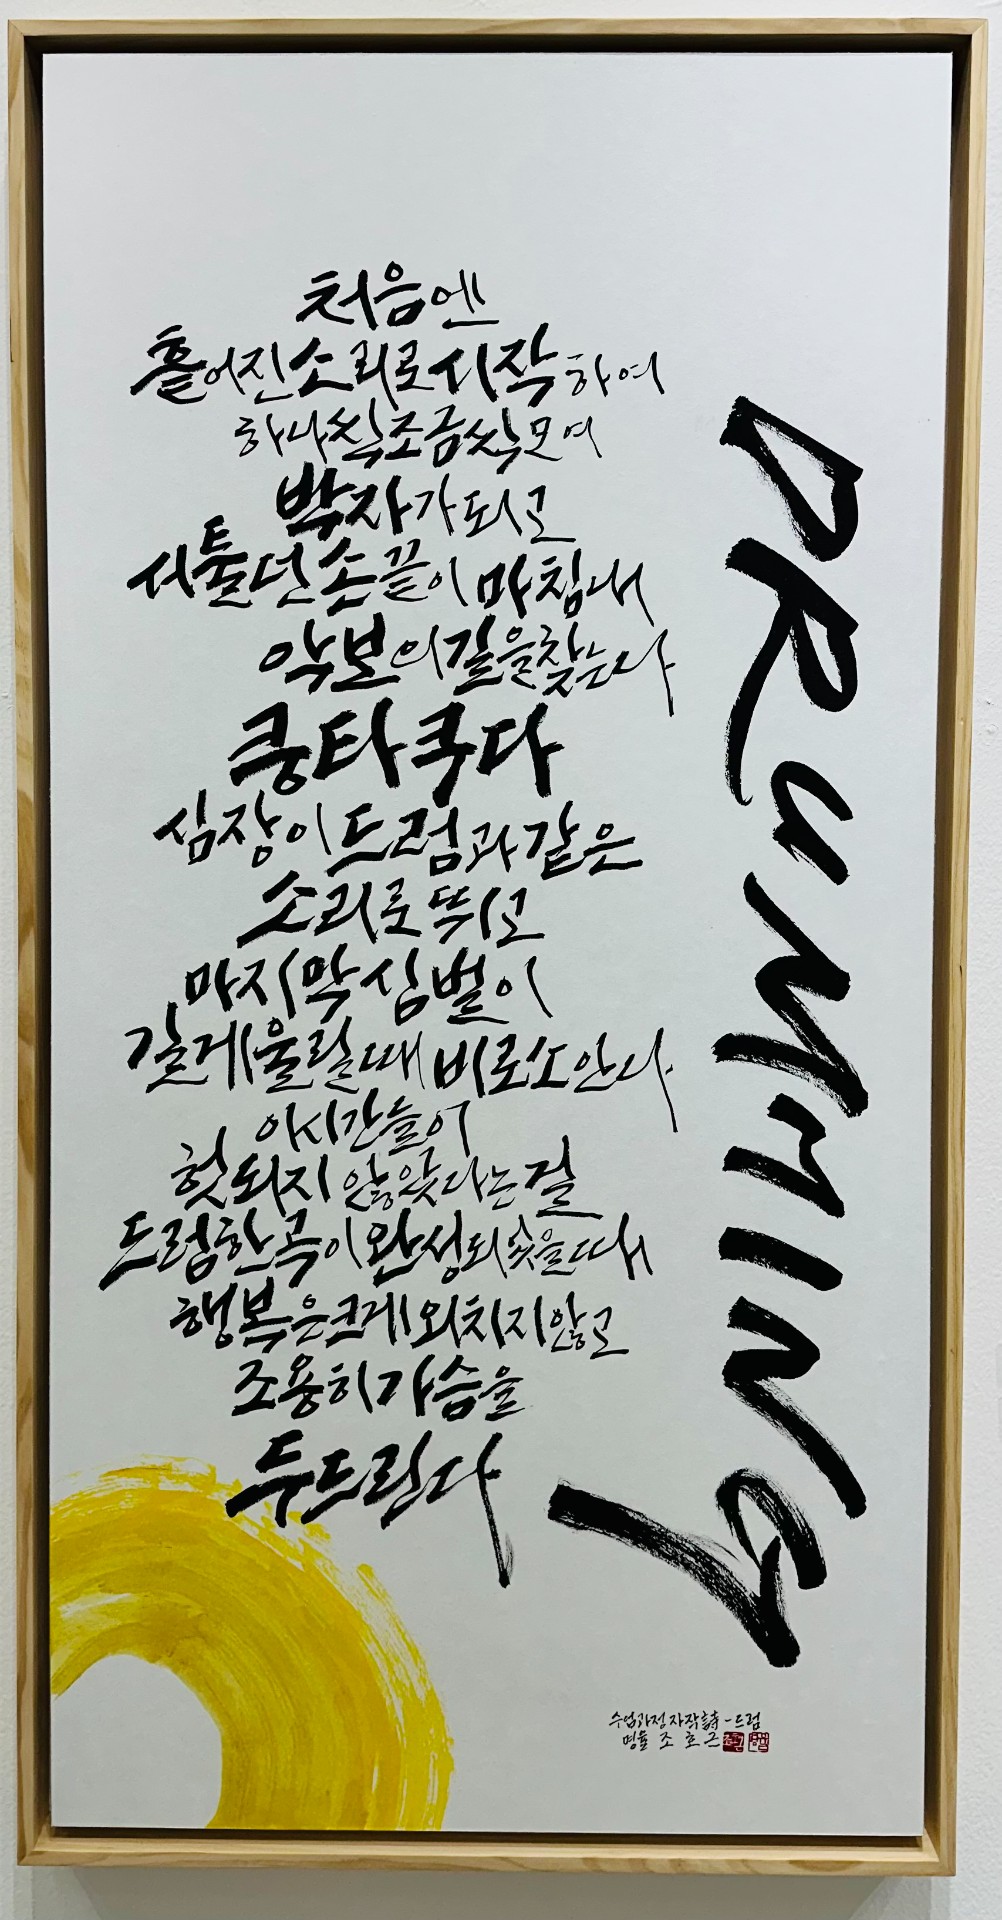 처음엔
흩어진 소리로 시작하여
하나씩 조금씩 모여
박자가 되고
서툴던 손끝이 마침내
악보의 길을 찾는다
쿵타쿠다
심장이 드럼과 같은
소리로 뛰고
마지막 심벌이
길게 울릴 때 비로소 안다
이 시간들이
헛되지 않았다는 걸
드럼 한 곡이 완성되었을 때
행복은 크게 외치지 않고
조용히 가슴을
두드린다
DRUMMING
수업과정 자작詩-드럼
명율 조호근